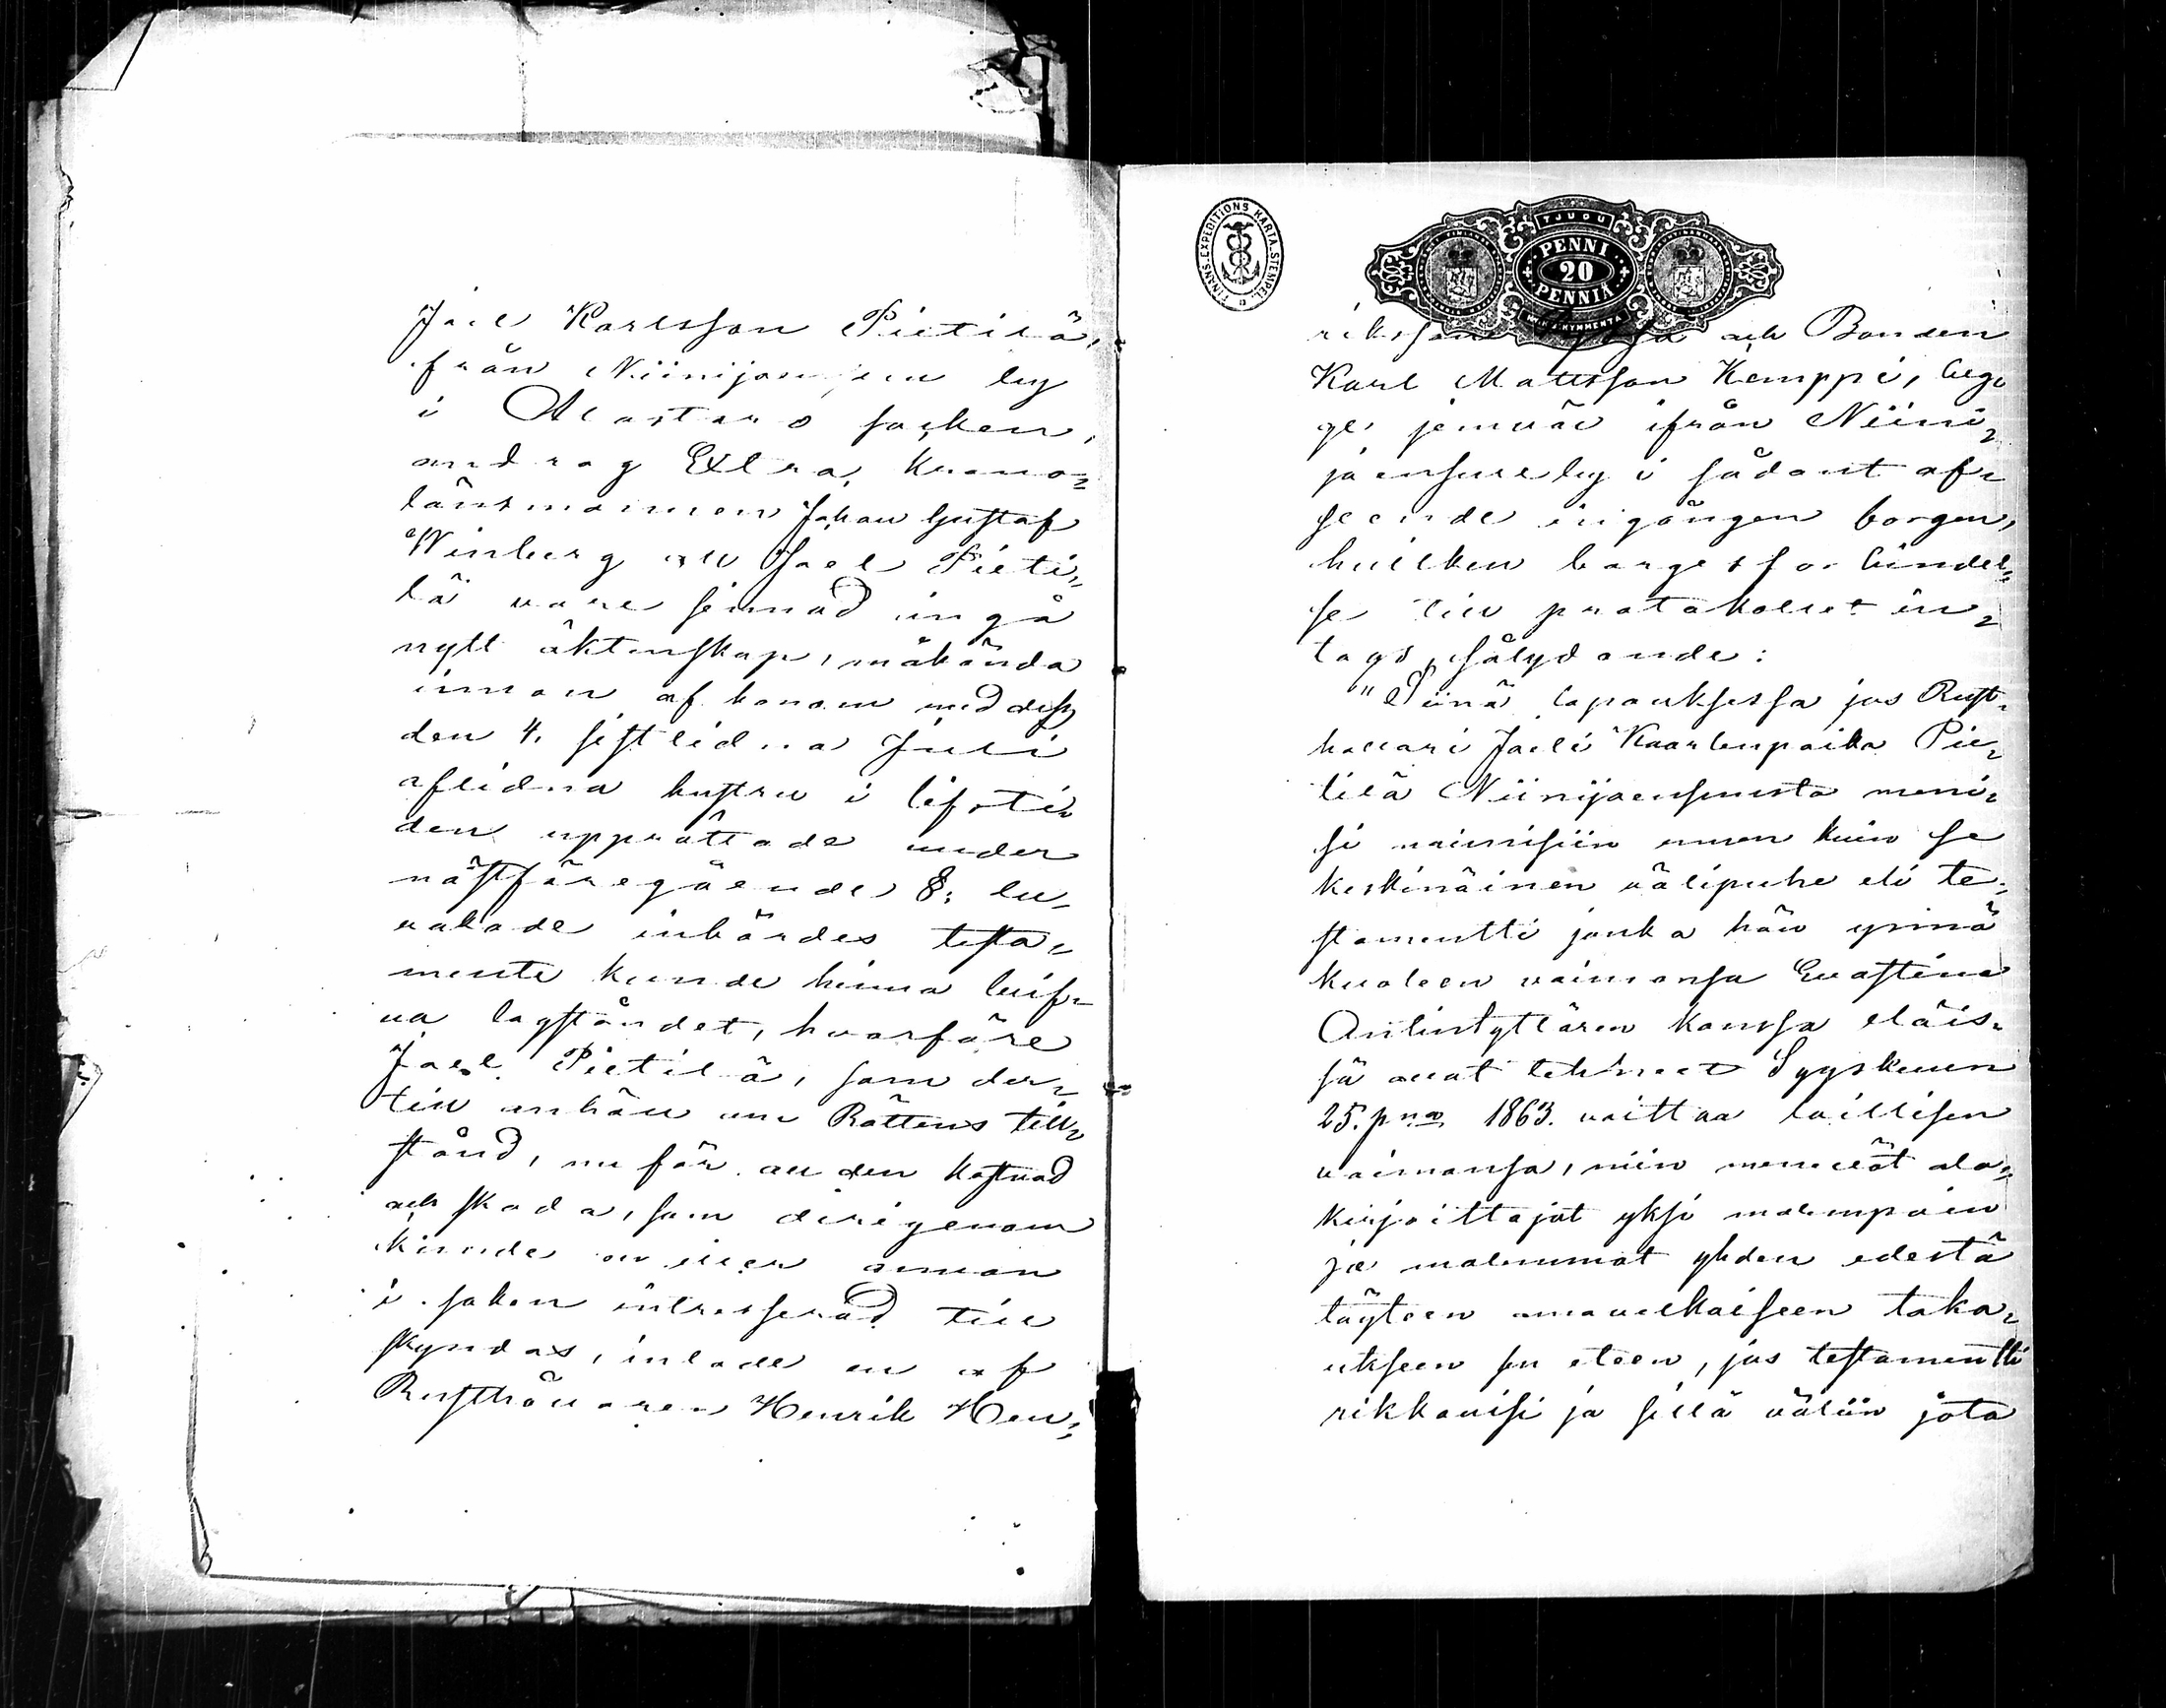 Joel Karlsson Pietilä,
från Niinijoensuu by
i Alastaro socken,
androg Extra Krono-
länsmannen Johan Gustaf
Winberg att Joel Pieti-
lä vore sinnad ingå
nytt äktenskap, måhända
innan af honom med dess
den 4. sistlidna Juli
aflidna hustru i lifsti-
den upprättade under
nästföregående §: be-
vakade inbördes testa-
mente kunde hinna beif-
va lagståndet, hvarföre
Joel Pietilä, som der-
till anhöll om Rättens till-
stånd, nu för all den kostnad
och skada, som derigenom
kunde en eller annan
i saken intresserad till
skyndas, inlade en af
Rusthållaren Henrik Hen-
FINANS. EXPEDITIONS KARTA. STEMPEL.
TJUGU
PENNI
20
PENNIÄ
KAKSIKYMMENTÄ
riksson och Bonden
Karl Mattsson Kemppi,
jemväl ifrån Niini-
joensuu by i sådant af-
seende ingången borgen,
hvilken borgesförbindel-
se till protokollet in-
togs, sålydande:
"Siinä tapauksessa jos Rust-
hollari Joeli Kaarlenpoika Pie-
tilä Niinijoensuusta meni-
si naimisiin ennen kuin se
keskinäinen välipuhe eli te-
stamentti jonka hän ynnä
kuoleen vaimonsa Evastina
Antintyttären kanssa eläis-
sä ovat tehneet Syyskuun
25. pnä 1863. voittaa laillisen
voimansa, niin menevät ala-
kirjoittajat yksi molempain
ja molemmat yhden edestä
täyteen omavelkaiseen taka-
ukseen sen eteen, jos testamentti
rikkouisi ja sillä väliin jota